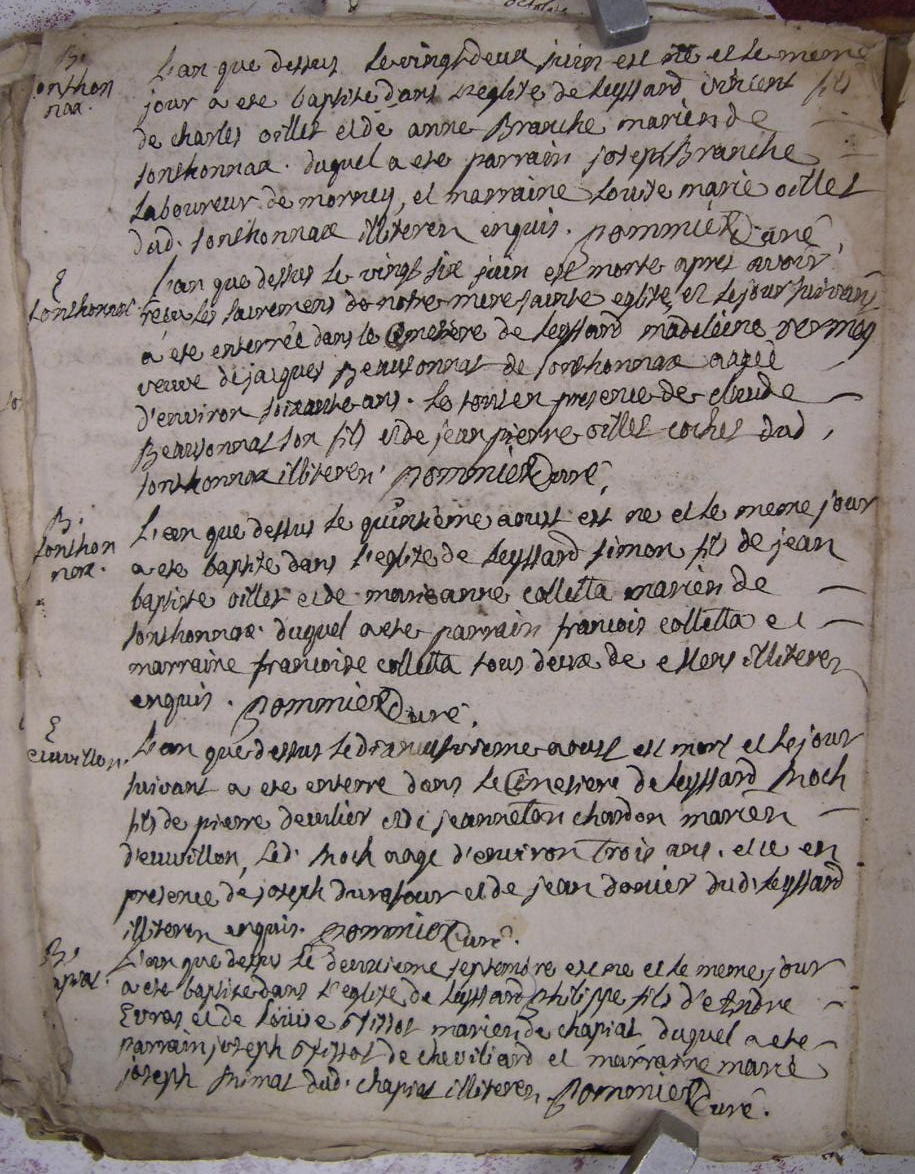 B.
sonthon
nax.
L'an que dessus le vingt deux juin est né et le meme
jour a ete baptisé dans l'eglise de leyssard vincent fils
de charles oillet et de anne Branche mariés de
sonthonnax. duquel a ete parrain joseph Branche
Laboureur de morney, et marraine Louise marie oillet
dud. sonthonnax illiteres enquis. pommier Curé
E
sonthonnax
L'an que dessus le vingt six juin est morte apres avoir
receu les sacremens de notre mere sainte eglise, et le jour suivant
a ete enterrée dans le Cimetiere de leyssard madeleine vermey
veuve de jacques Beausonnat de sonthonnax aagée
d'environ soixante ans. Le tout en presence de claude
Beausonnat son fils et de jean pierre oillet cochet dud
sonthonnax illiteres. pommier Curé
B.
sonthon
nax.
L'an que dessus le quinsième aoust est né et le meme jour
a ete baptisé dans l'eglise de leyssard simon fils de jean
baptiste oillet et de marieanne colletta mariés de
sonthonnax. duquel a ete parrain francois colletta et
marraine francoise colletta tous deux de illiteres
enquis. pommier Curé.
E
euvillon.
L'an que dessus le aoust est mort et le jour
suivant a ete enterré dans le Cimetiere de leyssard Roch
fils de pierre et de jeanneton chardon mariés
d'euvillon, led. Roch aagé d'environ trois ans. et ce en
presence de joseph et de jean donier dud. leyssard
illiteres enquis. pommier Curé.
B.
L'an que dessus le deuxieme septembre est né et le meme jour
a ete baptisé dans l'eglise de leyssard philippe fils d'Andre
Evras et de Louise tissot mariés de chapiat duquel a ete
parrain joseph tissot de cheviliard et marraine marie
joseph dud. chapiat illiteres. pommier
Curé.